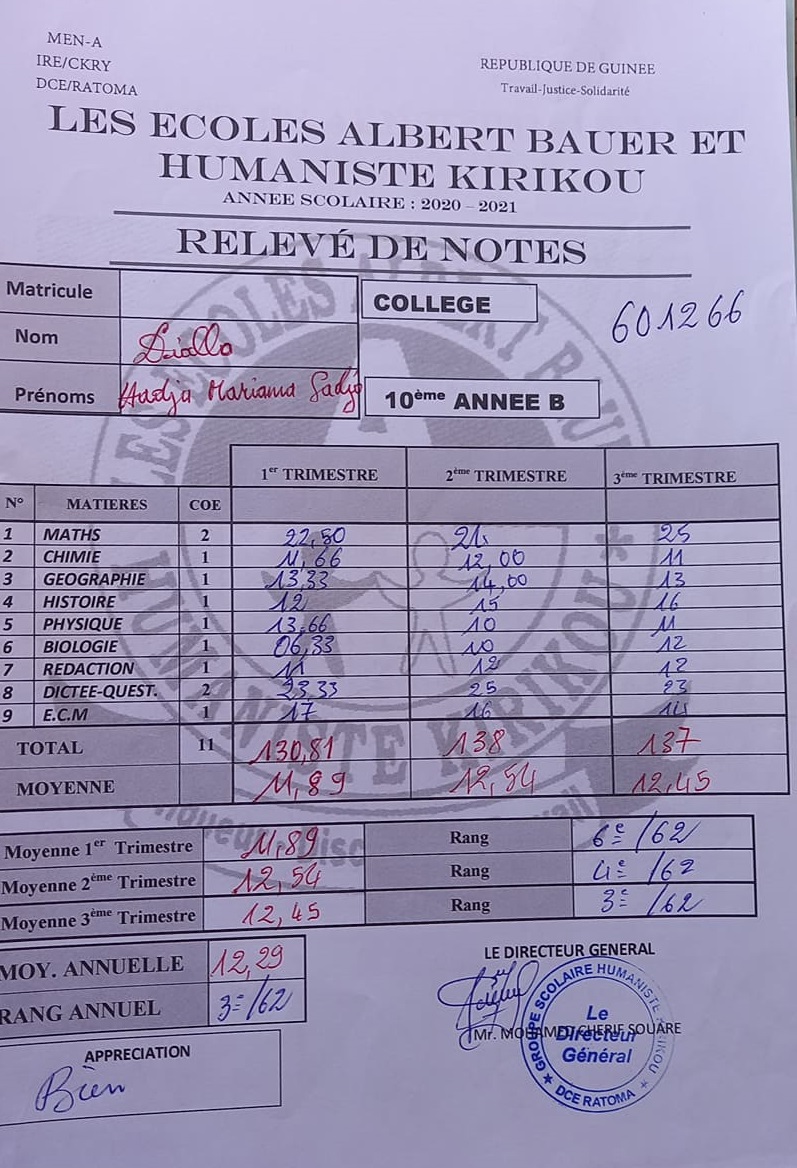 MEN-A
IRE/CKRY
DCE/RATOMA
REPUBLIQUE DE GUINEE
Travail-Justice-Solidarité
LES ECOLES ALBERT BAUER ET
HUMANISTE KIRIKOU
ANNEE SCOLAIRE : 2020 – 2021
RELEVÉ DE NOTES
Matricule
COLLEGE
601266
Nom Diallo
Prénoms Hadja Mariama Sadjo
10ème ANNEE B
1er TRIMESTRE 2ème TRIMESTRE 3ème TRIMESTRE
N° MATIERES COE
1 MATHS 2 22,50 21 25
2 CHIMIE 1 11,66 12,00 11
3 GEOGRAPHIE 1 13,33 14,00 13
4 HISTOIRE 1 12 15 16
5 PHYSIQUE 1 13,66 10 11
6 BIOLOGIE 1 06,33 10 12
7 REDACTION 1 11 12 12
8 DICTEE-QUEST. 2 23,33 25 23
9 E.C.M 1 17 16
TOTAL 11 130,81 138 137
MOYENNE 11,89 12,54 12,45
Moyenne 1er Trimestre 11,89 Rang 6e/62
Moyenne 2ème Trimestre 12,54 Rang 4e/62
Moyenne 3ème Trimestre 12,45 Rang 3e/62
MOY. ANNUELLE 12,29
RANG ANNUEL 3e/62
LE DIRECTEUR GENERAL
Mr. MOHAMED CHERIF SOUARE
GROUPE SCOLAIRE HUMANISTE KIRIKOU
Le
Directeur
Général
DCE RATOMA
APPRECIATION
Bien